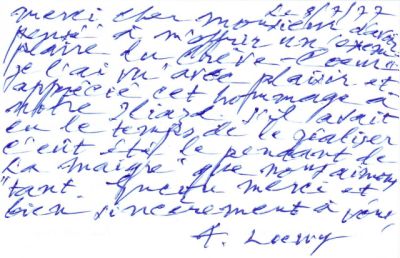 Le 8/7/77
merci cher monsieur d'avoir
pensé à m'offrir un exem
plaire du Crève-Coeur
je l'ai vu avec plaisir et
apprécié cet hommage à
notre S'il avait
eu le temps de le réaliser
c'eût été le pendant de
La maigre" que nous aimons
"tant. Encore merci et
bien sincèrement à vous